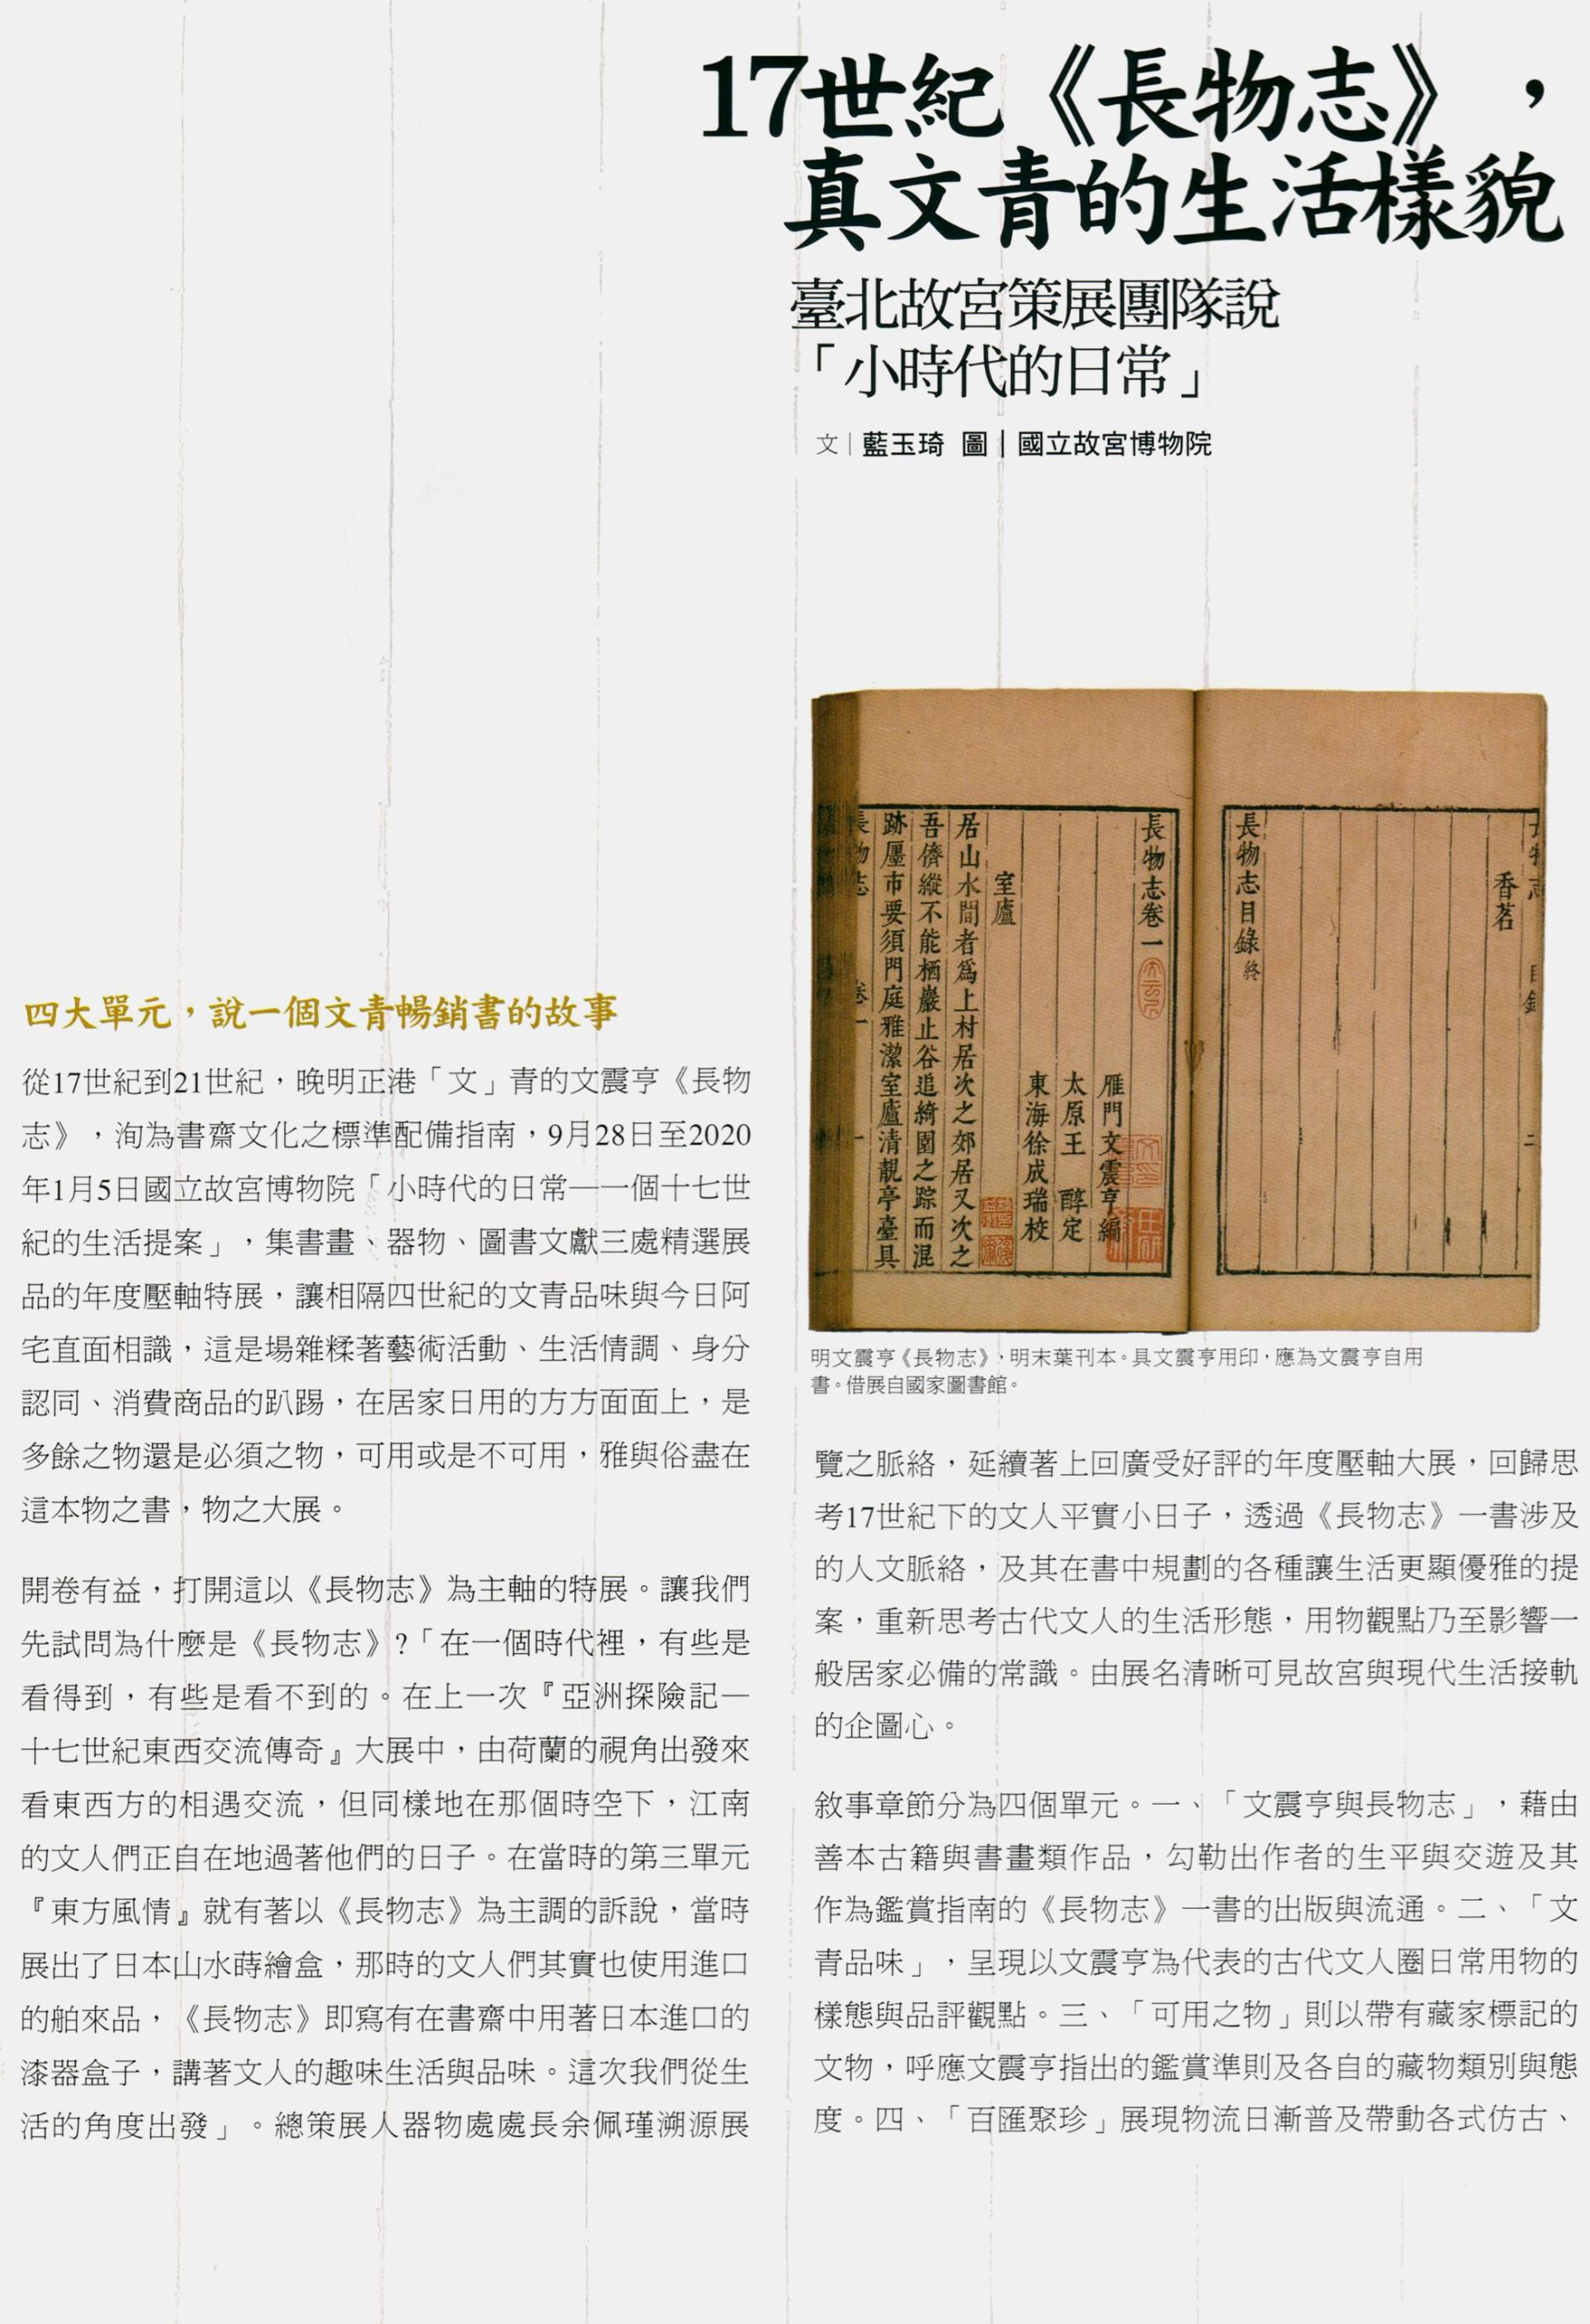 17世紀《長物志》，
真文青的生活樣貌
臺北故宮策展團隊說
「小時代的日常」
文｜藍玉琦 圖｜國立故宮博物院
四大單元，說一個文青暢銷書的故事
從17世紀到21世紀，晚明正港「文」青的文震亨《長物
志》，洵為書齋文化之標準配備指南，9月28日至2020
年1月5日國立故宮博物院「小時代的日常─一個十七世
紀的生活提案」，集書畫、器物、圖書文獻三處精選展
品的年度壓軸特展，讓相隔四世紀的文青品味與今日阿
宅直面相識，這是場雜糅著藝術活動、生活情調、身分
認同、消費商品的趴踢，在居家日用的方方面面上，是
多餘之物還是必須之物，可用或是不可用，雅與俗盡在
這本物之書，物之大展。
開卷有益，打開這以《長物志》為主軸的特展。讓我們
先試問為什麼是《長物志》?「在一個時代裡，有些是
看得到，有些是看不到的。在上一次『亞洲探險記─
十七世紀東西交流傳奇』大展中，由荷蘭的視角出發來
看東西方的相遇交流，但同樣地在那個時空下，江南
的文人們正自在地過著他們的日子。在當時的第三單元
『東方風情』就有著以《長物志》為主調的訴說，當時
展出了日本山水蒔繪盒，那時的文人們其實也使用進口
的舶來品，《長物志》即寫有在書齋中用著日本進口的
漆器盒子，講著文人的趣味生活與品味。這次我們從生
活的角度出發」。總策展人器物處處長余佩瑾溯源展
香茗
長物志目錄終
長物志卷一
雁門文震亨編
太原王 醇定
東海徐成瑞校
室廬
居山水間者為上村居次之郊居又次之
吾儕縱不能栖巖止谷追綺園之踪而混
跡廛市要須門庭雅潔室廬清靚亭臺具
長物志 卷一 一
明文震亨《長物志》，明末葉刊本。具文震亨用印，應為文震亨自用
書。借展自國家圖書館。
覽之脈絡，延續著上回廣受好評的年度壓軸大展，回歸思
考17世紀下的文人平實小日子，透過《長物志》一書涉及
的人文脈絡，及其在書中規劃的各種讓生活更顯優雅的提
案，重新思考古代文人的生活形態，用物觀點乃至影響一
般居家必備的常識。由展名清晰可見故宮與現代生活接軌
的企圖心。
敘事章節分為四個單元。一、「文震亨與長物志」，藉由
善本古籍與書畫類作品，勾勒出作者的生平與交遊及其
作為鑑賞指南的《長物志》一書的出版與流通。二、「文
青品味」，呈現以文震亨為代表的古代文人圈日常用物的
樣態與品評觀點。三、「可用之物」則以帶有藏家標記的
文物，呼應文震亨指出的鑑賞準則及各自的藏物類別與態
度。四、「百匯聚珍」展現物流日漸普及帶動各式仿古、